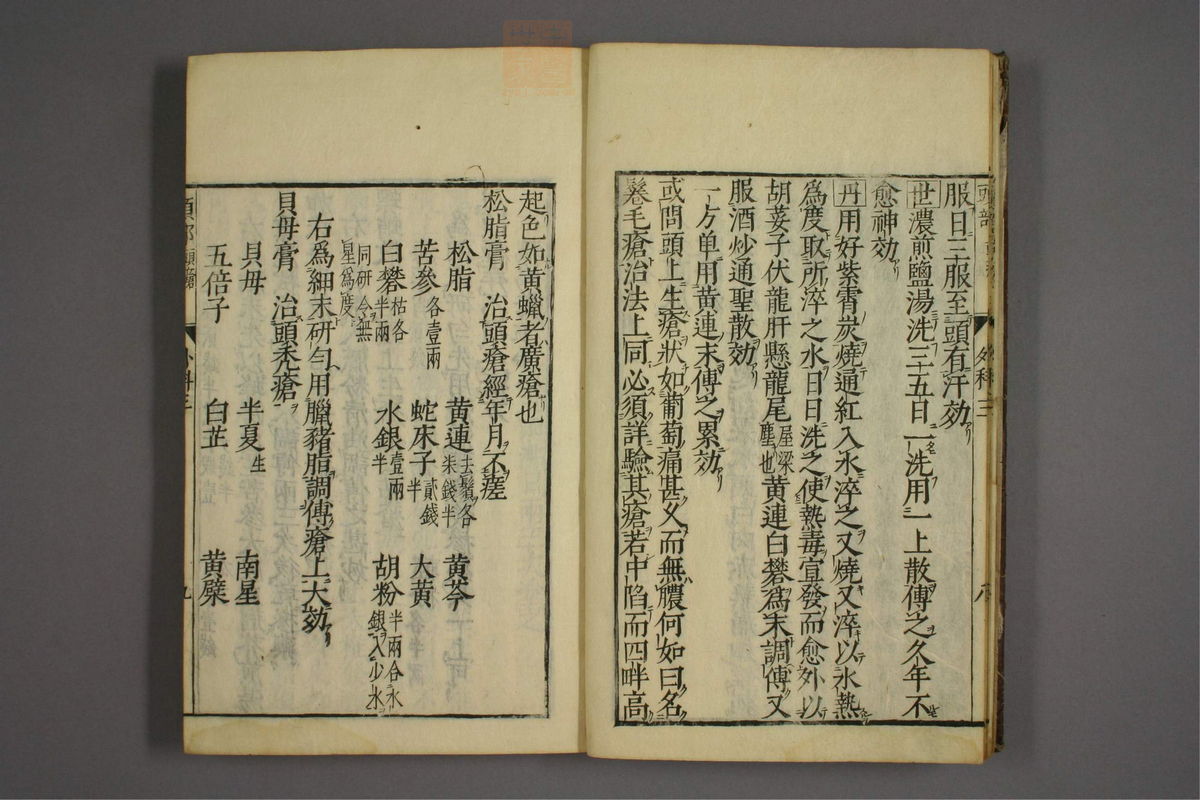 服日三服至頭有汗効
世濃煎鹽湯洗三五日一洗用一上散傅之久年不
愈神効
丹用好紫霄炭燒通紅入水淬之又燒又淬以水熱
爲度取所淬之水日日洗之使熱毒宣發而愈外以
胡荽子伏龍肝懸龍尾屋梁塵也黄連白礬爲末調傅又
服酒炒通聖散効
一方単用黄連末傅之累効
或問頭上生瘡狀如葡萄痛甚乂而無膿何如曰名
鬈毛瘡治法上同必須詳驗其瘡若中陷而四畔高
外科三
八
起色如黄蠟者廣瘡也
松脂膏 治頭瘡經年月不瘥
松脂 黄連去鬚各柒錢半 黄芩
苦參各壹兩 蛇床子貳錢半 大黄
白礬枯各半兩 水銀壹兩半 胡粉半兩合水銀入少水
同研令無星爲度
右爲細末研匀用臘豬脂調傅瘡上大効
貝母膏 治頭禿瘡
貝母 半夏生 南星
五倍子 白芷 黄檗
外科三
九